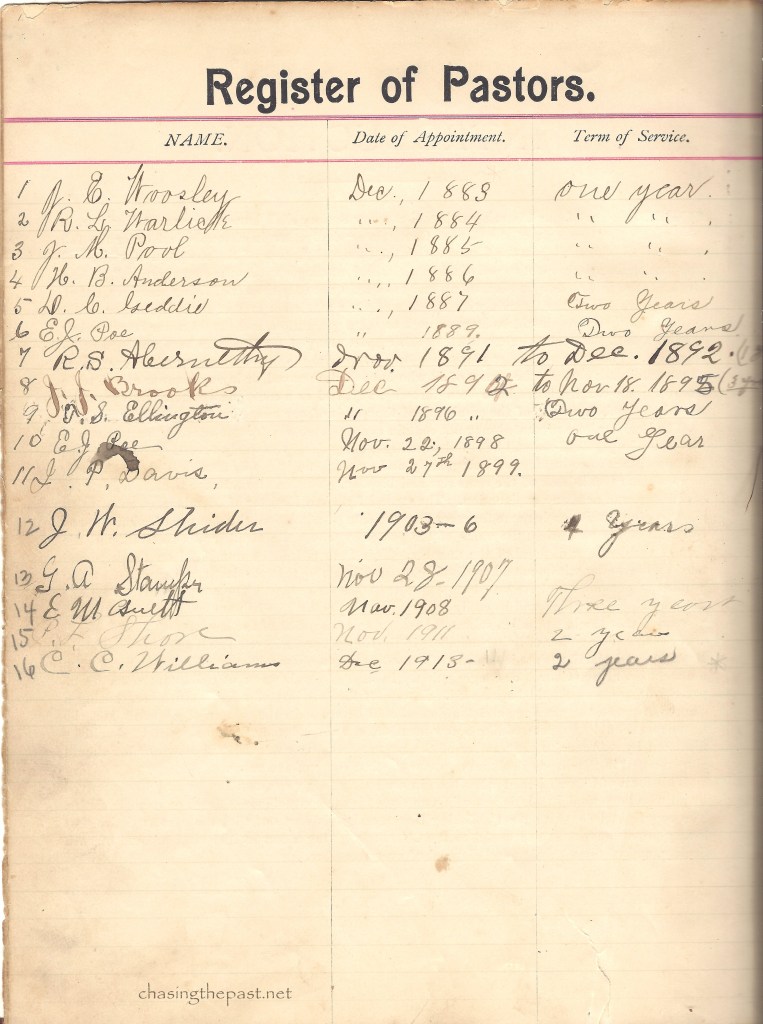 Register of Pastors.
NAME. Date of Appointment. Term of Service.
1 J. E. Woosley Dec., 1883 one year.
2 R. L. Warlick " ., 1884 " " .
3 J. M. Pool " ., 1885 " " .
4 H. B. Anderson " ., 1886 " " .
5 D. C. Geddie " ., 1887 Two Years
6 E.J. Poe " 1889. Two Years
7 R.S. Abernethy Nov. 1891 to Dec. 1892.
8 J. J. Brooks Dec 1892 to Nov 18. 1895
9 Ellington " 1896 " Two Years
10 E.J. Poe Nov. 22, 1898 one Year
11 J. P. Davis, Nov 27th 1899.
12 J. W. Strider 1903-6 4 Years
13 G. A Stamper Nov 28-1907
14 E M Nov. 1908 Three years
15 Shore Nov. 1911 2 years
16 C. C. Williams Dec 1913- 2 years
chasingthepast.net